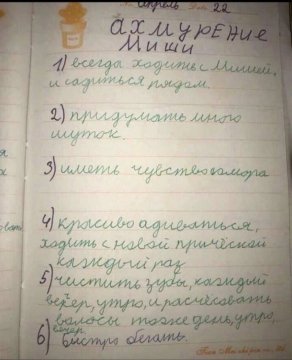 апрель 22
АХМУРЕНИЕ
Миши
1) всегда ходить с Мишей,
и садиться рядом.
2) придумать много
шуток.
3) иметь чувство юмора
4) красиво адиваться,
ходить с новой причёской
каждый раз
5) чистить зубы, каждый
вечер, утро, и расчёсовать
волосы тоже день, утро,
вечер.
6) быстро бегать.